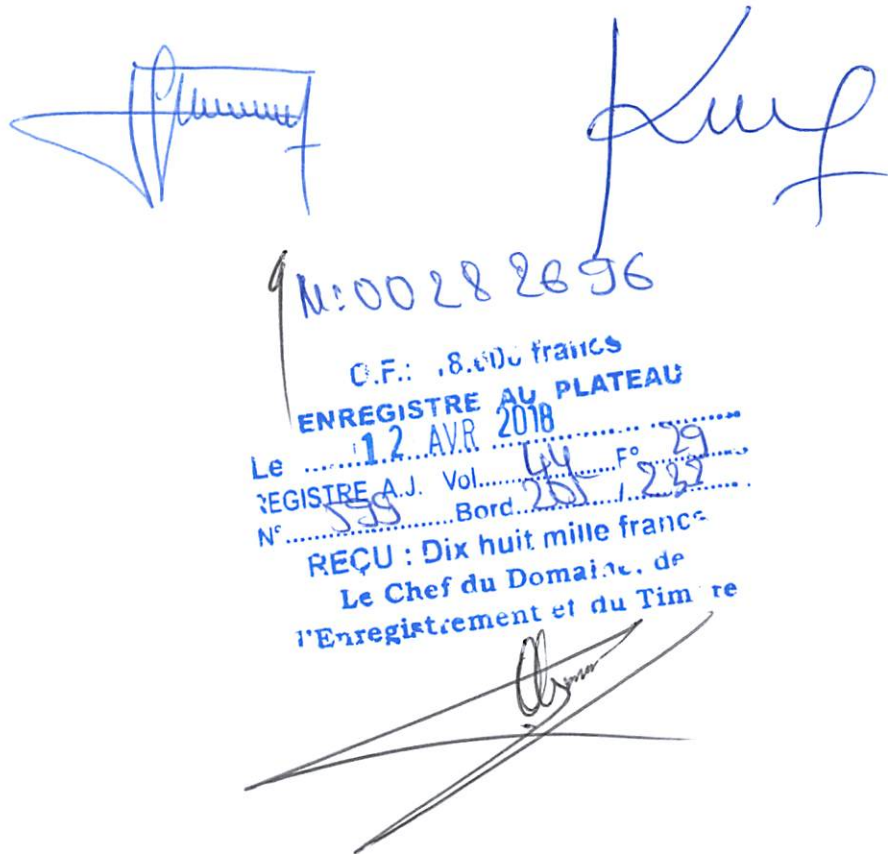 N:00 28 26 96
D.F.: 18.000 francs
ENREGISTRE AU PLATEAU
Le ....... 12 AVR 2018 ..................
REGISTRE A.J. Vol....... 44 .......F° ... 29 ......
N° ....... 599 .......Bord.... 205 ../.. 232 ....
REÇU : Dix huit mille francs
Le Chef du Domaine, de
l'Enregistrement et du Timbre